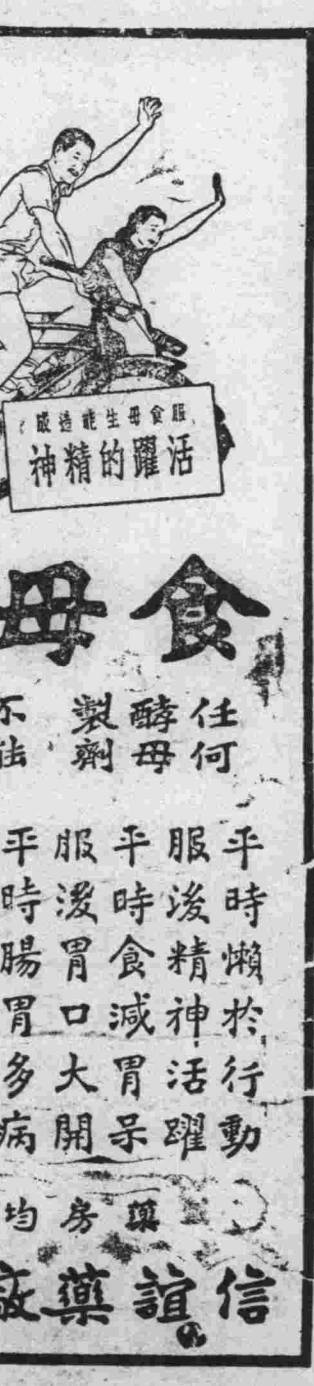 服食母生能造成
活躍的精神
食母
任何
酵母
製劑
不能
平時懶於行動
服後精神活躍
平時食減胃呆
服後胃口大開
平時腸胃多病
藥房均
信誼藥廠